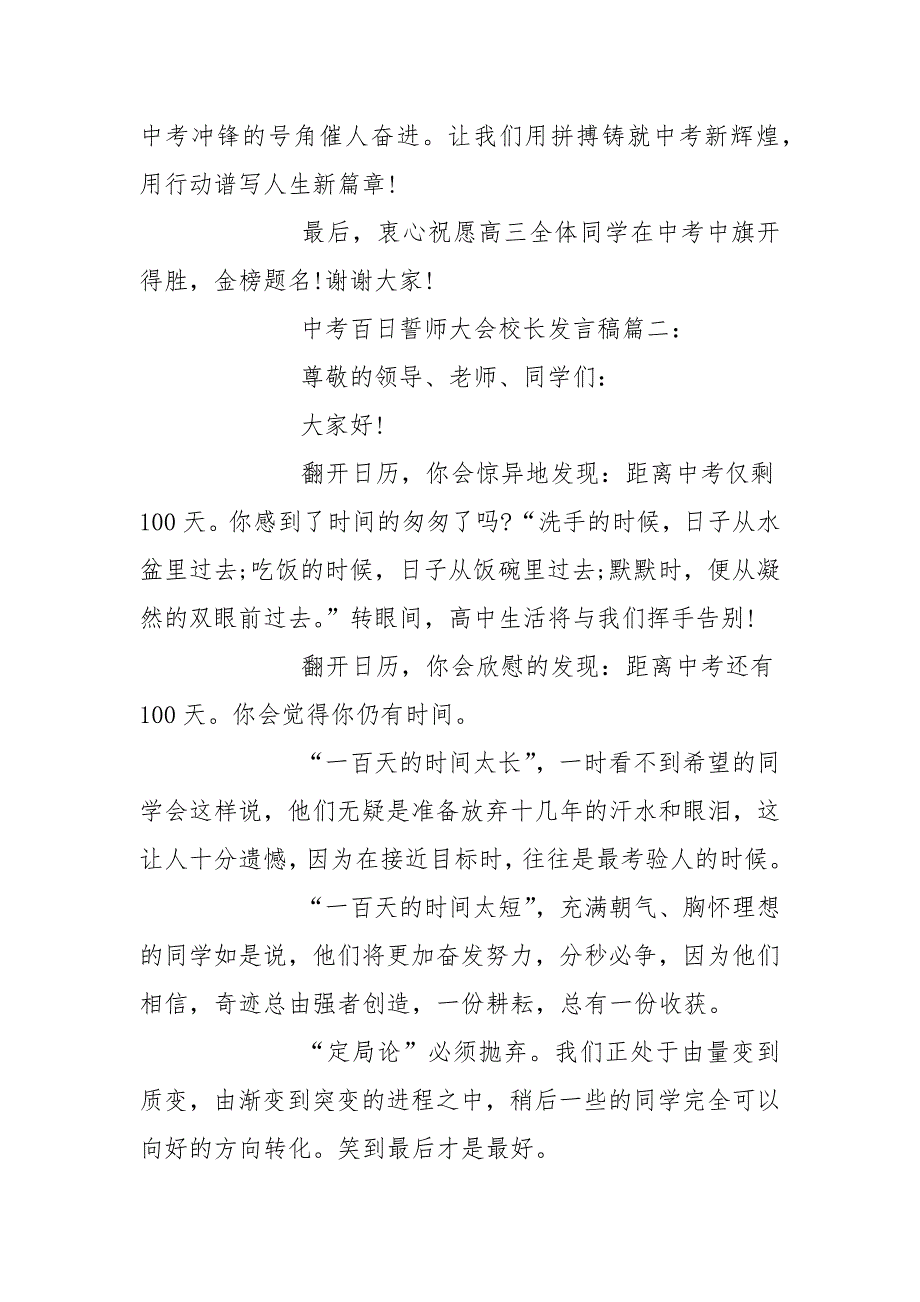 中考冲锋的号角催人奋进。让我们用拼搏铸就中考新辉煌，
用行动谱写人生新篇章!
最后，衷心祝愿高三全体同学在中考中旗开
得胜，金榜题名!谢谢大家!
中考百日誓师大会校长发言稿篇二：
尊敬的领导、老师、同学们：
大家好!
翻开日历，你会惊异地发现：距离中考仅剩
100 天。你感到了时间的匆匆了吗?“洗手的时候，日子从水
盆里过去;吃饭的时候，日子从饭碗里过去;默默时，便从凝
然的双眼前过去。”转眼间，高中生活将与我们挥手告别!
翻开日历，你会欣慰的发现：距离中考还有
100 天。你会觉得你仍有时间。
“一百天的时间太长”，一时看不到希望的同
学会这样说，他们无疑是准备放弃十几年的汗水和眼泪，这
让人十分遗憾，因为在接近目标时，往往是最考验人的时候。
“一百天的时间太短”，充满朝气、胸怀理想
的同学如是说，他们将更加奋发努力，分秒必争，因为他们
相信，奇迹总由强者创造，一份耕耘，总有一份收获。
“定局论”必须抛弃。我们正处于由量变到
质变，由渐变到突变的进程之中，稍后一些的同学完全可以
向好的方向转化。笑到最后才是最好。